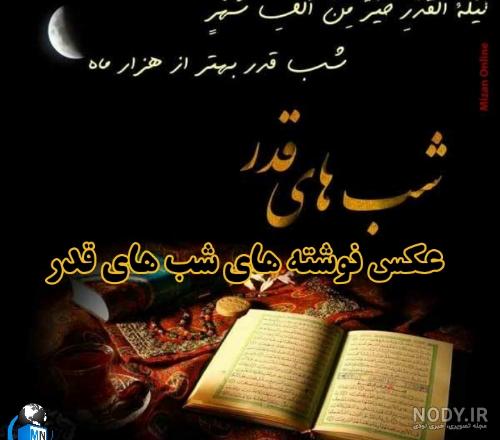 لَيلَةُ القَدرِ خَيرٌ مِن اَلفِ شَهرٍ
شب قدر بهتر از هزار ماه
Mizan Online
شب های قدر
عکس نوشته های شب های قدر
NODY.IR
مجله تصویری، خبری نودی
MN